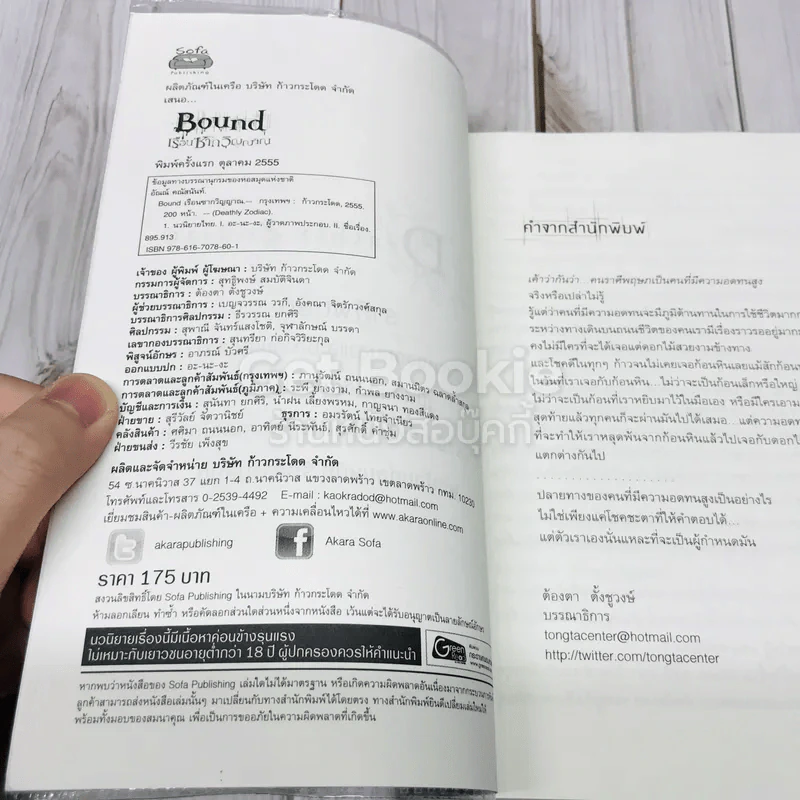 Sofa
Publishing
ผลิตภัณฑ์ในเครือ บริษัท ก้าวกระโดด จำกัด
เสนอ...
Bound
เรือนซากวิญญาณ
พิมพ์ครั้งแรก ตุลาคม 2555
ข้อมูลทางบรรณานุกรมของหอสมุดแห่งชาติ
อัณณ์ คณัสนันท์.
Bound เรือนซากวิญญาณ.-- กรุงเทพฯ : ก้าวกระโดด, 2555.
200 หน้า. -- (Deathly Zodiac).
1. นวนิยายไทย. I. อะ-นะ-งะ, ผู้วาดภาพประกอบ. II. ชื่อเรื่อง.
895.913
ISBN 978-616-7078-60-1
เจ้าของ ผู้พิมพ์ ผู้โฆษณา : บริษัท ก้าวกระโดด จำกัด
กรรมการผู้จัดการ : สุทธิพงษ์ สมบัติจินดา
บรรณาธิการ : ต้องตา ตั้งชูวงษ์
ผู้ช่วยบรรณาธิการ : เบญจวรรณ วรกี, อังคณา จิตรักวงศ์สกุล
บรรณาธิการศิลปกรรม : ธีรวรรณ ยกศิริ
ศิลปกรรม : สุพาณี จันทร์แสงโชติ, จุฬาลักษณ์ บรรดา
เลขากองบรรณาธิการ : สุนทรียา ก่อกิจวิริยะกุล
พิสูจน์อักษร : อาภรณ์ บัวศรี
ออกแบบปก : อะ-นะ-งะ
การตลาดและลูกค้าสัมพันธ์(กรุงเทพฯ) : ภานุวัฒน์ ถนนนอก, สมานมิตร ฉลาดล้ำ
การตลาดและลูกค้าสัมพันธ์(ภูมิภาค) : ระพี ยางงาม, กำพล ยางงาม
บัญชีและการเงิน : สุนันทา ยกศิริ, น้ำฝน เลี้ยงพรหม, กาญจนา ทองสีแดง
ฝ่ายขาย : สุรีวัลย์ จิตวานิชย์ ธุรการ : อมรรัตน์ ไทยจำเนียร
คลังสินค้า : คศิมา ถนนนอก, อาทิตย์ นีระพันธ์, สุรศักดิ์ คำชุ่ม
ฝ่ายขนส่ง : วีรชัย เพ็งสุข
ผลิตและจัดจำหน่าย บริษัท ก้าวกระโดด จำกัด
54 ซ.นาคนิวาส 37 แยก 1-4 ถ.นาคนิวาส แขวงลาดพร้าว เขตลาดพร้าว กทม. 10230
โทรศัพท์และโทรสาร 0-2539-4492 E-mail : kaokradod@hotmail.com
เยี่ยมชมสินค้า-ผลิตภัณฑ์ในเครือ + ความเคลื่อนไหวได้ที่ www.akaraonline.com
akarapublishing
Akara Sofa
ราคา 175 บาท
สงวนลิขสิทธิ์โดย Sofa Publishing ในนามบริษัท ก้าวกระโดด จำกัด
ห้ามลอกเลียน ทำซ้ำ หรือคัดลอกส่วนใดส่วนหนึ่งจากหนังสือ เว้นแต่จะได้รับอนุญาตเป็นลายลักษณ์อักษร
นวนิยายเรื่องนี้มีเนื้อหาค่อนข้างรุนแรง
ไม่เหมาะกับเยาวชนอายุต่ำกว่า 18 ปี ผู้ปกครองควรให้คำแนะนำ
Green
หากพบว่าหนังสือของ Sofa Publishing เล่มใดไม่ได้มาตรฐาน หรือเกิดความผิดพลาดอันเนื่องมาจากกระบวนการ
ลูกค้าสามารถส่งหนังสือเล่มนั้นๆ มาเปลี่ยนกับทางสำนักพิมพ์ได้โดยตรง ทางสำนักพิมพ์ยินดีเปลี่ยนเล่มใหม่ให้
พร้อมทั้งมอบของสมนาคุณ เพื่อเป็นการขออภัยในความผิดพลาดที่เกิดขึ้น
คำจากสำนักพิมพ์
เค้าว่ากันว่า คนราศีพฤษภเป็นคนที่มีความอดทนสูง
จริงหรือเปล่าไม่รู้
รู้แต่ว่าคนที่มีความอดทนจะมีภูมิต้านทานในการใช้ชีวิตมาก
ระหว่างทางเดินบนถนนชีวิตของคนเรามีเรื่องราวรออยู่มาก
คงไม่มีใครที่จะได้เจอแต่ดอกไม้สวยงามข้างทาง
และโชคดีในทุกๆ ก้าวจนไม่เคยเจอก้อนหินเลยแม้สักก้อน
ในวันที่เราเจอกับก้อนหิน...ไม่ว่าจะเป็นก้อนเล็กหรือใหญ่
ไม่ว่าจะเป็นก้อนหินที่เราหยิบมาไว้ในมือเอง หรือมีใครเอา
สุดท้ายแล้วทุกคนก็จะผ่านมันไปได้เสมอ... แต่ความอดทน
ที่จะทำให้เราหลุดพ้นจากก้อนหินแล้วไปเจอกับดอกไม้
แตกต่างกันไป
....................
ปลายทางของคนที่มีความอดทนสูงเป็นอย่างไร
ไม่ใช่เพียงแค่โชคชะตาที่ให้คำตอบได้...
แต่ตัวเราเองนั่นแหละที่จะเป็นผู้กำหนดมัน
ต้องตา ตั้งชูวงษ์
บรรณาธิการ
tongtacenter@hotmail.com
http://twitter.com/tongtacenter
Got Bookie
ร้านหนังสือบุคกี้